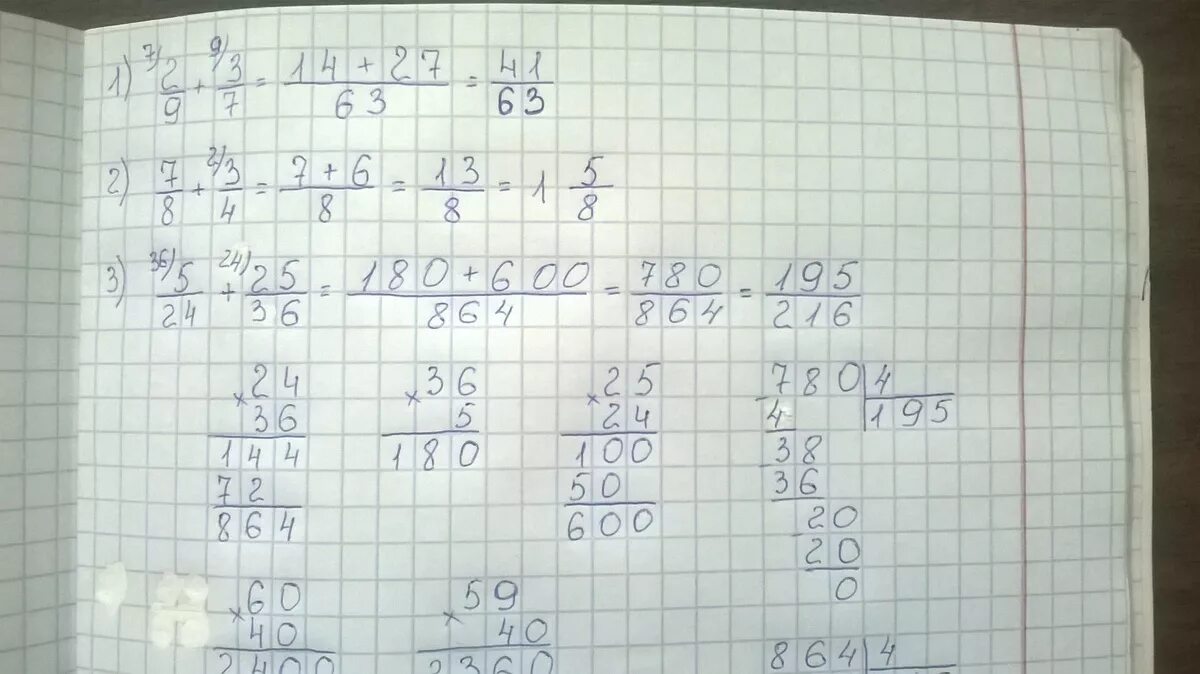 1) 7) 2/9 + 9) 3/7 = 14 + 27/63 = 41/63
2) 7/8 + 2) 3/4 = 7 + 6/8 = 13/8 = 1 5/8
3) 36) 5/24 + 24) 25/36 = 180 + 600/864 = 780/864 = 195/216
× 24
36
144
72
864
× 36
5
180
× 25
24
100
50
600
780 | 4
4 | 195
38
36
20
20
0
× 60
40
2400
× 59
40
2360
864 | 4